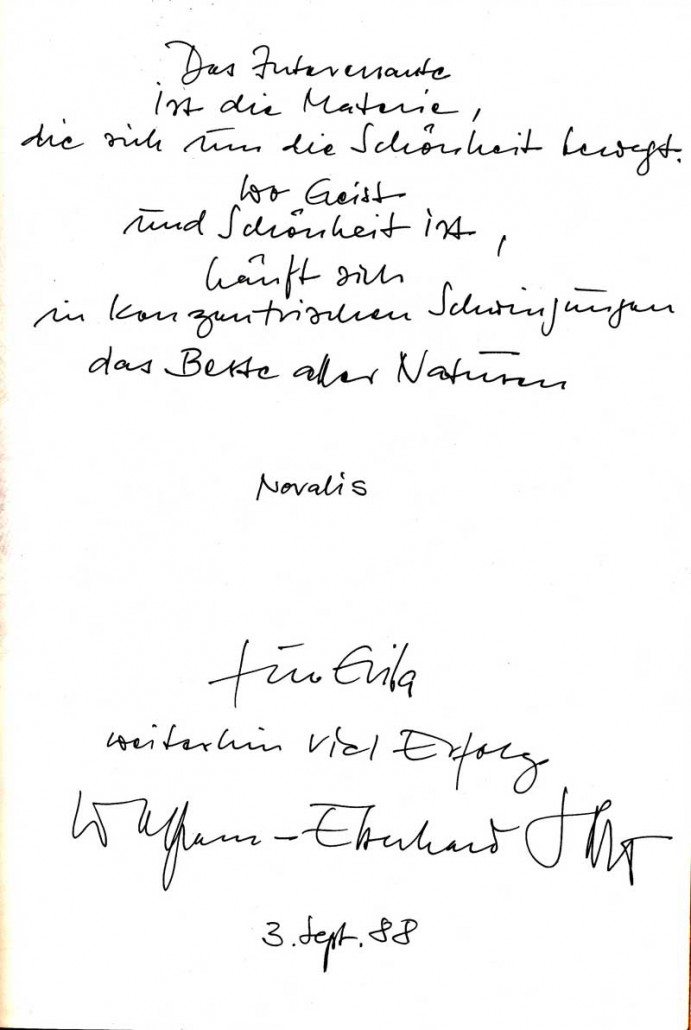 Das Interessante
ist die Materie,
die sich um die Schönheit bewegt.
Wo Geist
und Schönheit ist,
häuft sich
in konzentrischen Schwingungen
das Beste aller Naturen
Novalis
für
weiterhin viel Erfolg
Eberhard
3. Sept. 88